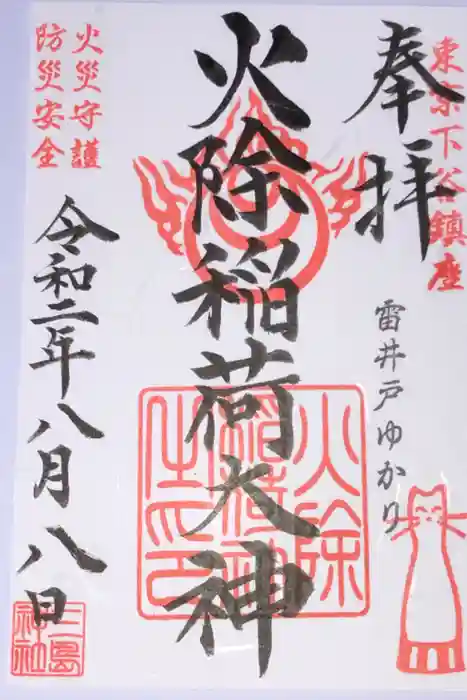 奉拝
東京下谷鎮座
雷井戸ゆかり
火除稲荷大神
火除
稲荷神
火災守護
防災安全
令和二年八月八日
三島
神社